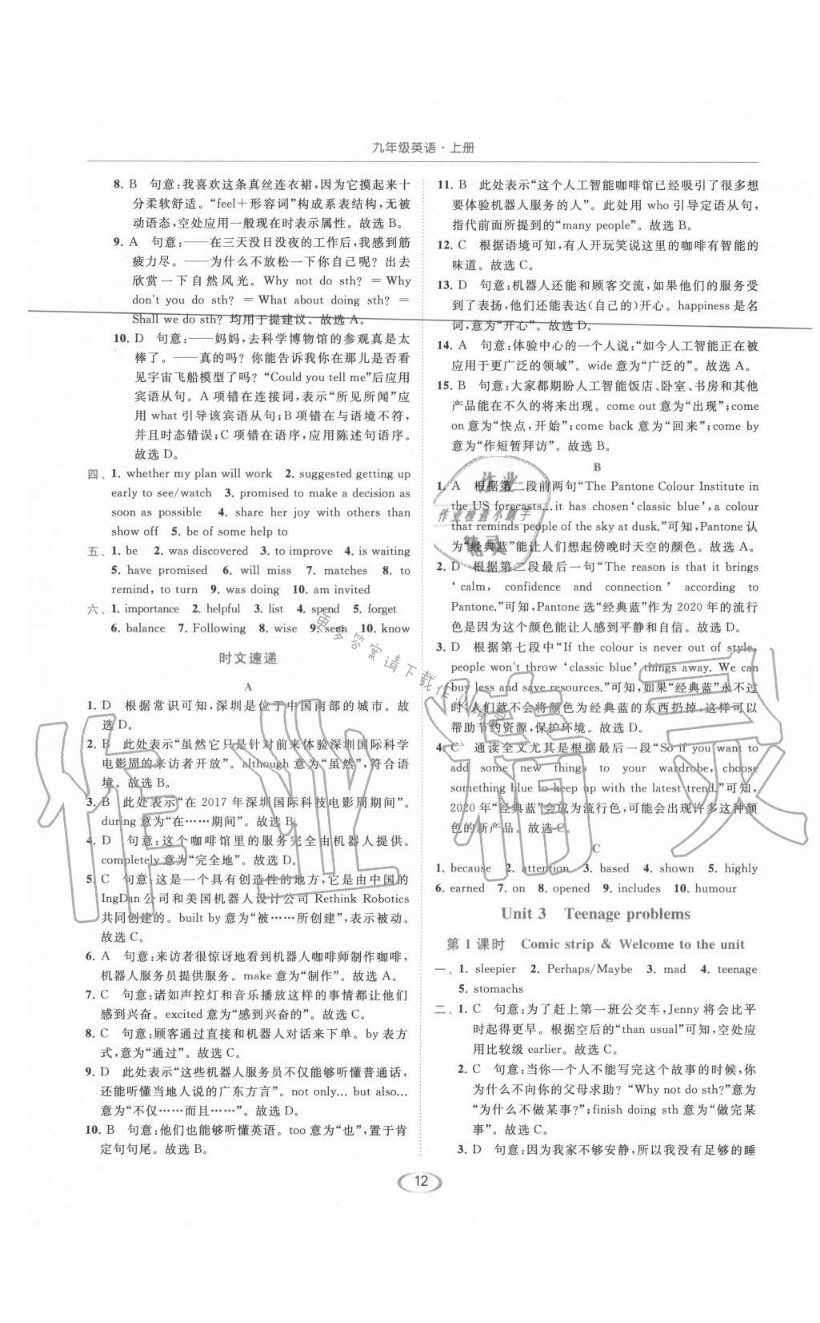 九年级英语·上册
8. B 句意:我喜欢这条真丝连衣裙,因为它摸起来十
分柔软舒适。“feel+形容词”构成系表结构,无被
动语态,空处应用一般现在时表示属性。故选 B。
9. A 句意:——在三天没日没夜的工作后,我感到筋
疲力尽。——为什么不放松一下你自己呢?出去
欣赏一下自然风光。Why not do sth? = Why
don't you do sth? = What about doing sth? =
Shall we do sth? 均用于提建议。故选 A。
10. D 句意:——妈妈,去科学博物馆的参观真是太
棒了。——真的吗?你能告诉我你在那儿是否看
见宇宙飞船模型了吗?“Could you tell me”后应用
宾语从句。A 项错在连接词,表示“所见所闻”应
用 what 引导该宾语从句;B 项错在与语境不符,
并且时态错误;C 项错在语序,应用陈述句语序。
故选 D。
四、1. whether my plan will work 2. suggested getting up
early to see/watch 3. promised to make a decision as
soon as possible 4. share her joy with others than
show off 5. be of some help to
五、1. be 2. was discovered 3. to improve 4. is waiting
5. have promised 6. will miss 7. matches 8. to
remind, to turn 9. was doing 10. am invited
六、1. importance 2. helpful 3. list 4. spend 5. forget
6. balance 7. Following 8. wise 9. seen 10. know
时文速递
A
1. D 根据常识可知,深圳是位于中国南部的城市。故
选 D。
2. B 此处表示“虽然它只是针对前来体验深圳国际科学
电影周的来访者开放”。although 意为“虽然”,符合语
境。故选 B。
3. B 此处表示“在 2017 年深圳国际科技电影周期间”。
during 意为“在……期间”。故选 B。
4. D 句意:这个咖啡馆里的服务完全由机器人提供。
completely 意为“完全地”。故选 D。
5. C 句意:这是一个具有创造性的地方,它是由中国的
IngDan 公司和美国机器人设计公司 Rethink Robotics
共同创建的。built by 意为“被……所创建”,表示被动。
故选 C。
6. A 句意:来访者很惊讶地看到机器人咖啡师制作咖啡,
机器人服务员提供服务。make 意为“制作”。故选 A。
7. C 句意:诸如声控灯和音乐播放这样的事情都让他们
感到兴奋。excited 意为“感到兴奋的”。故选 C。
8. C 句意:顾客通过直接和机器人对话来下单。by 表方
式,意为“通过”。故选 C。
9. D 此处表示“这些机器人服务员不仅能够听懂普通话,
还能听懂当地人说的广东方言”。not only... but also...
意为“不仅……而且……”。故选 D。
10. B 句意:他们也能够听懂英语。too 意为“也”,置于肯
定句句尾。故选 B。
11. B 此处表示“这个人工智能咖啡馆已经吸引了很多想
要体验机器人服务的人”。此处用 who 引导定语从句,
指代前面所提到的“many people”。故选 B。
12. C 根据语境可知,有人开玩笑说这里的咖啡有智能的
味道。故选 C。
13. D 句意:机器人还能和顾客交流,如果他们的服务受
到了表扬,他们还能表达(自己的)开心。happiness 是名
词,意为“开心”。故选 D。
14. A 句意:体验中心的一个人说:“如今人工智能正在被
应用于更广泛的领域”。wide 意为“广泛的”。故选 A。
15. B 句意:大家都期盼人工智能饭店、卧室、书房和其他
产品能在不久的将来出现。come out 意为“出现”;come
on 意为“快点,开始”;come back 意为“回来”;come by
意为“作短暂拜访”。故选 B。
B
1. A 根据第二段前两句“The Pantone Colour Institute in
the US forecasts...it has chosen‘classic blue’, a colour
that reminds people of the sky at dusk.”可知,Pantone 认
为“经典蓝”能让人们想起傍晚时天空的颜色。故选 A。
2. D 根据第三段最后一句“The reason is that it brings
‘calm, confidence and connection’ according to
Pantone.”可知,Pantone 选“经典蓝”作为 2020 年的流行
色是因为这个颜色能让人感到平静和自信。故选 D。
3. D 根据第七段中“If the colour is never out of style,
people won't throw ‘classic blue’ things away. We can
buy less and save resources.”可知,如果“经典蓝”永不过
时,人们就不会将颜色为经典蓝的东西扔掉,这样可以
帮助节约资源,保护环境。故选 D。
4. C 通读全文尤其是根据最后一段“So if you want to
add some new things to your wardrobe, choose
something blue to keep up with the latest trend.”可知,
2020 年“经典蓝”会成为流行色,可能会出现许多这种颜
色的新产品。故选 C。
C
1. because 2. attention 3. based 4. shown 5. highly
6. earned 7. on 8. opened 9. includes 10. humour
Unit 3 Teenage problems
第 1 课时 Comic strip & Welcome to the unit
一、1. sleepier 2. Perhaps/Maybe 3. mad 4. teenage
5. stomachs
二、1. C 句意:为了赶上第一班公交车,Jenny 将会比平
时起得更早。根据空后的“than usual”可知,空处应
用比较级 earlier。故选 C。
2. C 句意:当你一个人不能写完这个故事的时候,你
为什么不向你的父母求助?“Why not do sth?”意为
“为什么不做某事?”;finish doing sth 意为“做完某
事”。故选 C。
3. D 句意:因为我家不够安静,所以我没有足够的睡
12
作业精灵